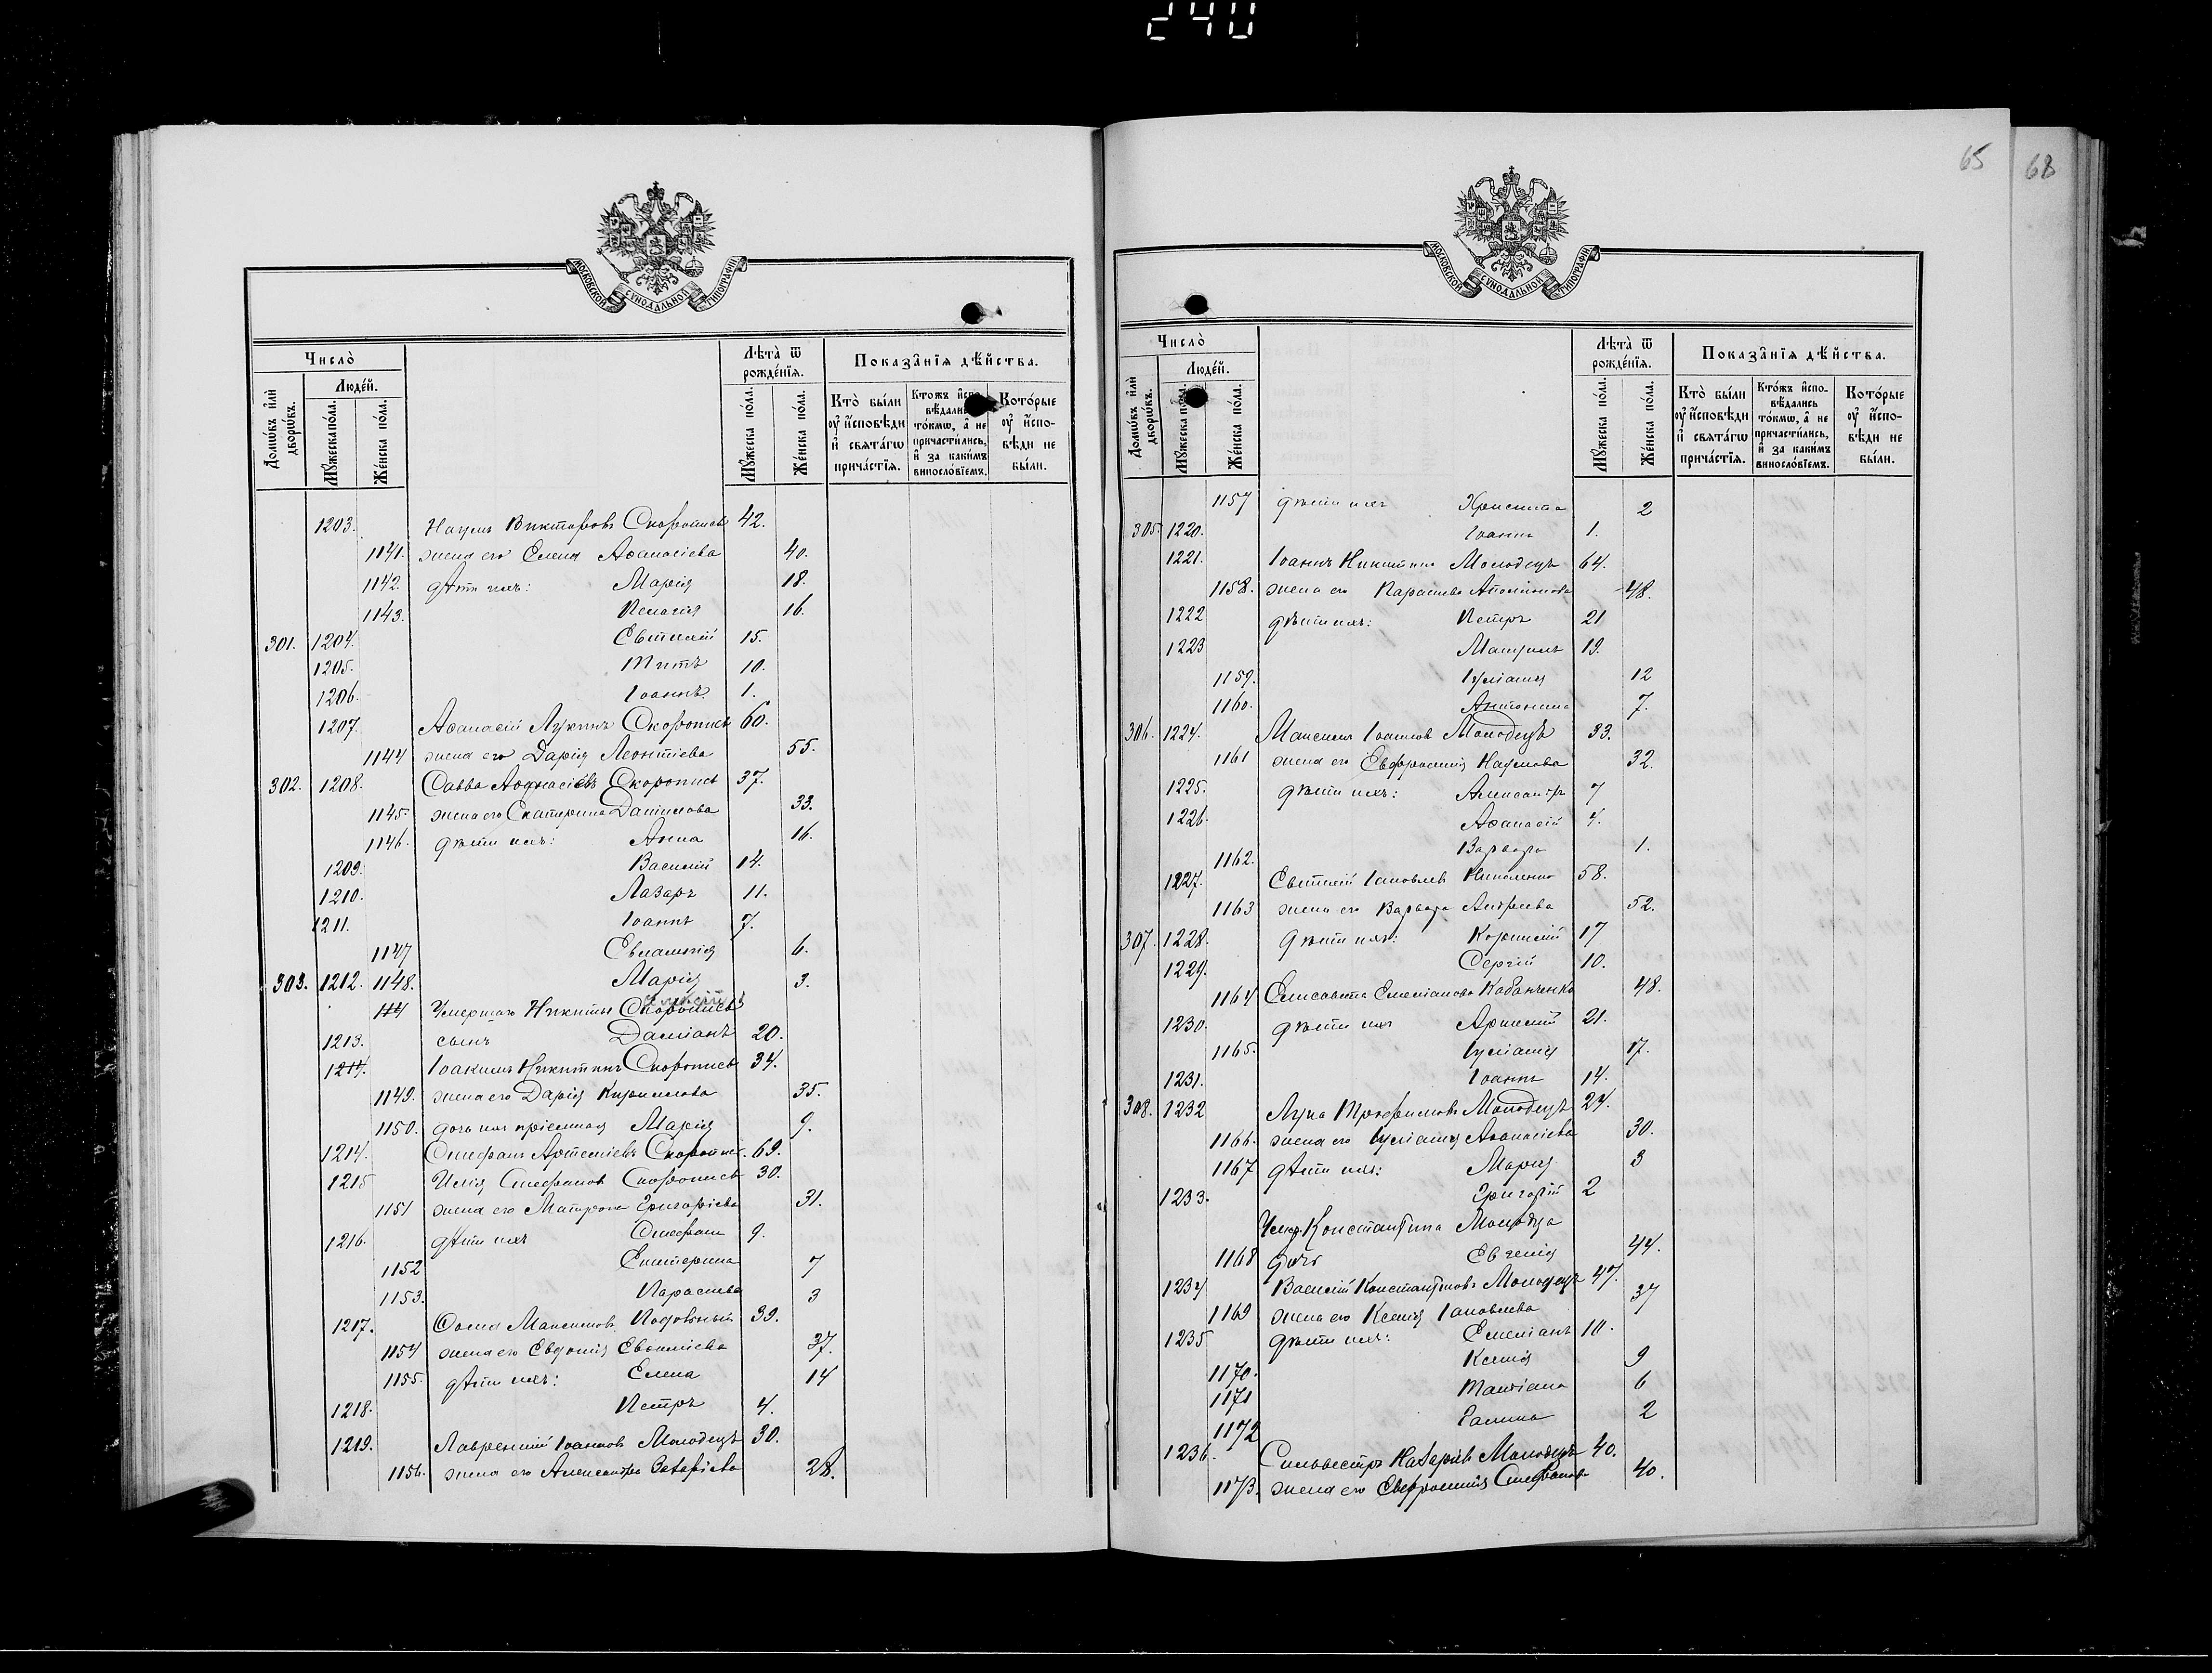 240
65
68
МОСКОВСКОЙ СУНОДАЛЬНОЙ ТИПОГРАФІИ
Число̀
Лѣта̀ ѿ рожде́нїѧ.
Показа̂нїѧ дѣ́йства.
Домѡ́въ и҆лѝ дворѡ́въ.
Люде́й.
Мꙋ́жеска по́ла.
Же́нска по́ла.
Мꙋ́жеска по́ла.
Же́нска по́ла.
Кто̀ бы́ли оу҆ и҆́сповѣди и҆ свѧта́гѡ прича́стїѧ.
Кто́жъ и҆спо-вѣ́дались то́кмѡ, а҆ не причасти́лись, и҆ за каки́мъ винослове́немъ.
Кото́рые оу҆ и҆́спо-вѣди не бы́ли.
1203. Наумъ Викторовъ Скоропись 42.
1141. жена его Елена Аѳанасіева 40.
1142. дѣти ихъ: Марія 18.
1143. Пелагія 16.
301. 1204. Евтихій 15.
1205. Титъ 10.
1206. Іоаннъ 1.
1207. Аѳанасій Лукинъ Скоропись 60.
1144 жена его Дарія Леонтіева 55.
302. 1208. Савва Аѳанасіевъ Скоропись 37.
1145. жена его Екатерина Даниилова 33.
1146. дѣти ихъ: Анна 16.
1209. Василій 14.
1210. Лазарь 11.
1211. Іоаннъ 7.
1147 Евлампія 6.
303. 1212. 1148. Марія 3.
114 Умершаго Никиты Скоропись
1213. сынъ Даміанъ 20.
1214. Іоакимъ Никитинъ Скоропись 34.
1149. жена его Дарія Кириллова 35.
1150. дочь ихъ пріемная Марія 9.
1214. Стефанъ Артеміевъ Скоропись. 69.
1215 Илія Стефановъ Скоропись 30.
1151 жена его Матрона Григоріева 31.
1216. дѣти ихъ Стефанъ 9.
1152 Екатерина 7
1153. Параскева 3
1217. Ѳома Максимовъ 39.
1154 жена его Евдокія Евѳиміева 37.
1155. дѣти ихъ: Елена 14
1218. Петръ 4.
1219. Лаврентій Іоанновъ Молодецъ 30.
1156. жена его Александра Захаріева 28.
Число̀
Лѣта̀ ѿ рожде́нїѧ.
Показа̂нїѧ дѣ́йства.
Домѡ́въ и҆лѝ дворѡ́въ.
Люде́й.
Мꙋ́жеска по́ла.
Же́нска по́ла.
Мꙋ́жеска по́ла.
Же́нска по́ла.
Кто̀ бы́ли оу҆ и҆́сповѣди и҆ свѧта́гѡ прича́стїѧ.
Кто́жъ и҆спо-вѣ́дались то́кмѡ, а҆ не причасти́лись, и҆ за каки́мъ винослове́немъ.
Кото́рые оу҆ и҆́спо-вѣди не бы́ли.
1157 дѣти ихъ Христина 2
305. 1220. Іоаннъ 1.
1221. Іоаннъ Никитинъ Молодецъ 64.
1158. жена его Параскева 48.
1222 дѣти ихъ: Петръ 21
1223 19.
1159. Іуліанія 12
1160. Антонина 7.
306. 1224. Максимъ Іоанновъ Молодецъ 33.
1161 жена его Евфросинія Наумова 32.
1225. дѣти ихъ: Александръ 7
1226. Аѳанасій 4.
1162. Варвара 1.
1227. Евтихій Іаковлевъ Николенко 58.
1163 жена его Варвара Андреева 52.
307. 1228. дѣти ихъ: Корнилій 17
1229. Сергій 10.
1164 Елисавета Емеліанова Кабанченко 48.
1230. дѣти ихъ 21.
1165. Іуліанія 17.
1231. Іоаннъ 14.
308. 1232 Лука Трофимовъ Молодецъ 24.
1166. жена его Іуліанія Аѳанасіева 30.
1167 дѣти ихъ: Марія 3
1233. Григорій 2
Умер. Константина Молодца
1168 дочь Евгенія 44.
1234 Василій Константиновъ Молодецъ 47.
1169 жена его Ксенія Іаковлева 37
1235 дѣти ихъ: Емеліанъ 10.
1170. Ксенія 9
1171 Татіана 6
1172 Галина 2
1236. Сильвестръ Назаріевъ Молодецъ 40.
1173. жена его Евфросинія Стефанова 40.